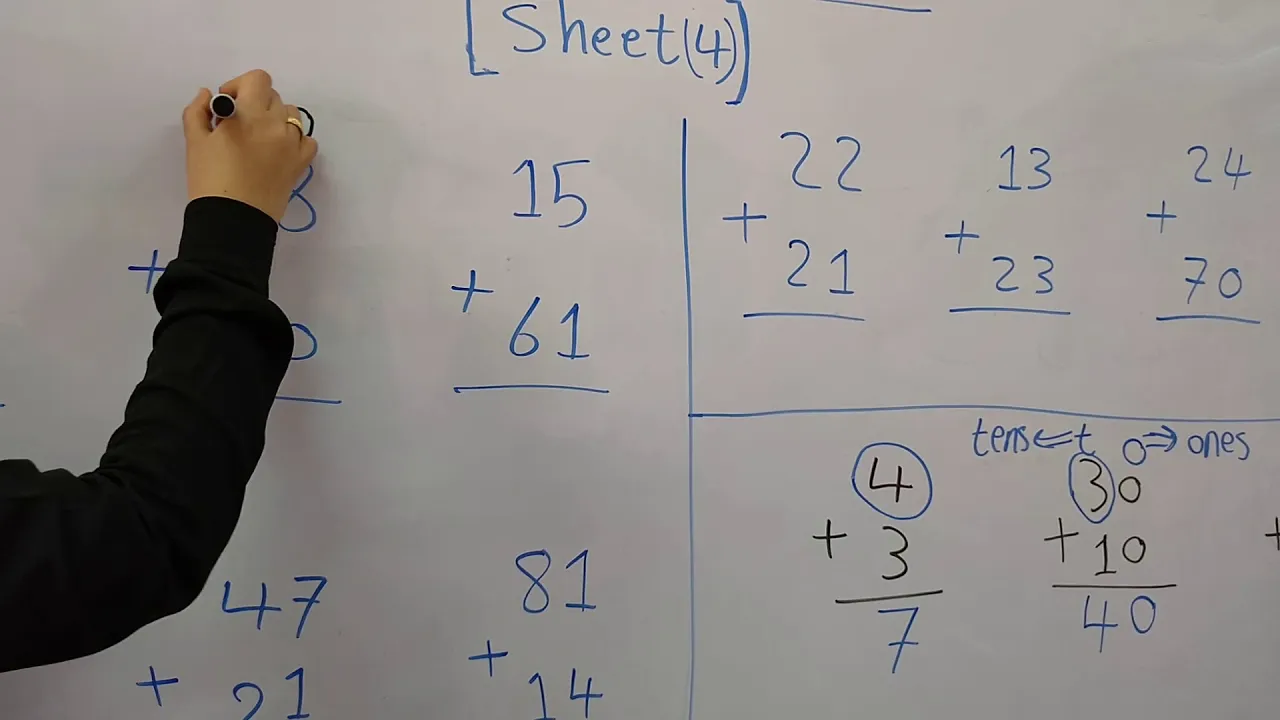 [Sheet(4)]
15
+
61
22
+
21
13
+
23
24
+
70
tens⇐t o⇒ones
4
+ 3
7
30
+ 10
40
+
47
+ 21
81
+ 14